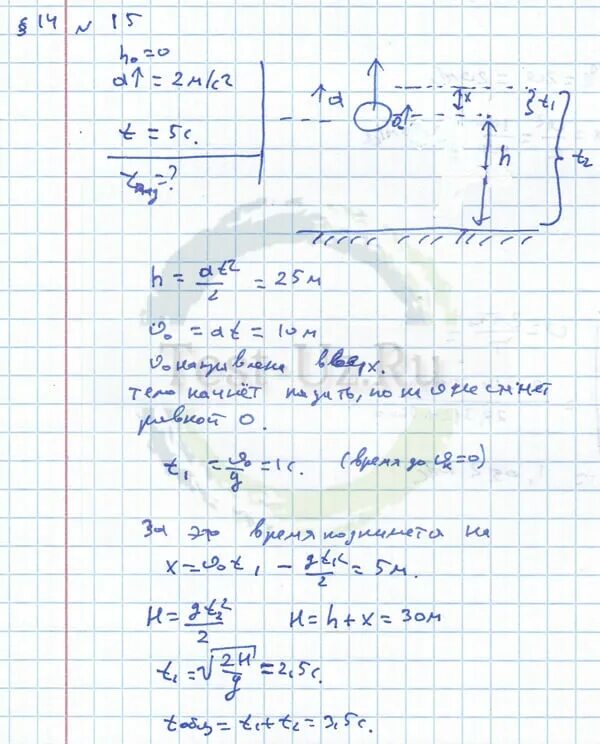 § 14 № 15
h₀ = 0
a↑ = 2 м/с²
t = 5 с.
t общ = ?
a
a
x
t₁
h
t₂
h = at²/2 = 25 м
υ₀ = at = 10 м
υ₀ направлена вверх.
тело начнёт падать, пока υ не станет
равной 0.
t₁ = υ₀/g = 1 с. (время до υ = 0)
За это время поднимется на
x = υ₀t₁ - gt₁²/2 = 5 м.
H = gt₂²/2 H = h + x = 30 м
t₁ = √2H/g = 2,5 с.
t общ = t₁ + t₂ = 3,5 с.
Test-Uz.Ru